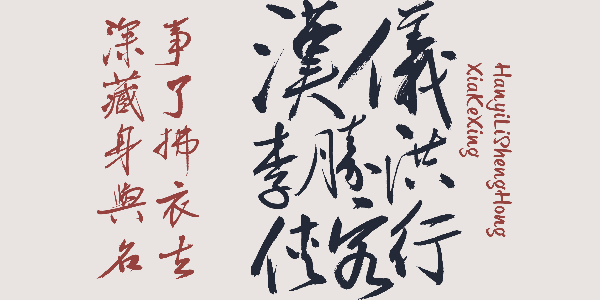 漢儀
李勝洪
俠客行
HanyiLiShengHong
XiaKeXing
事了拂衣去
深藏身與名